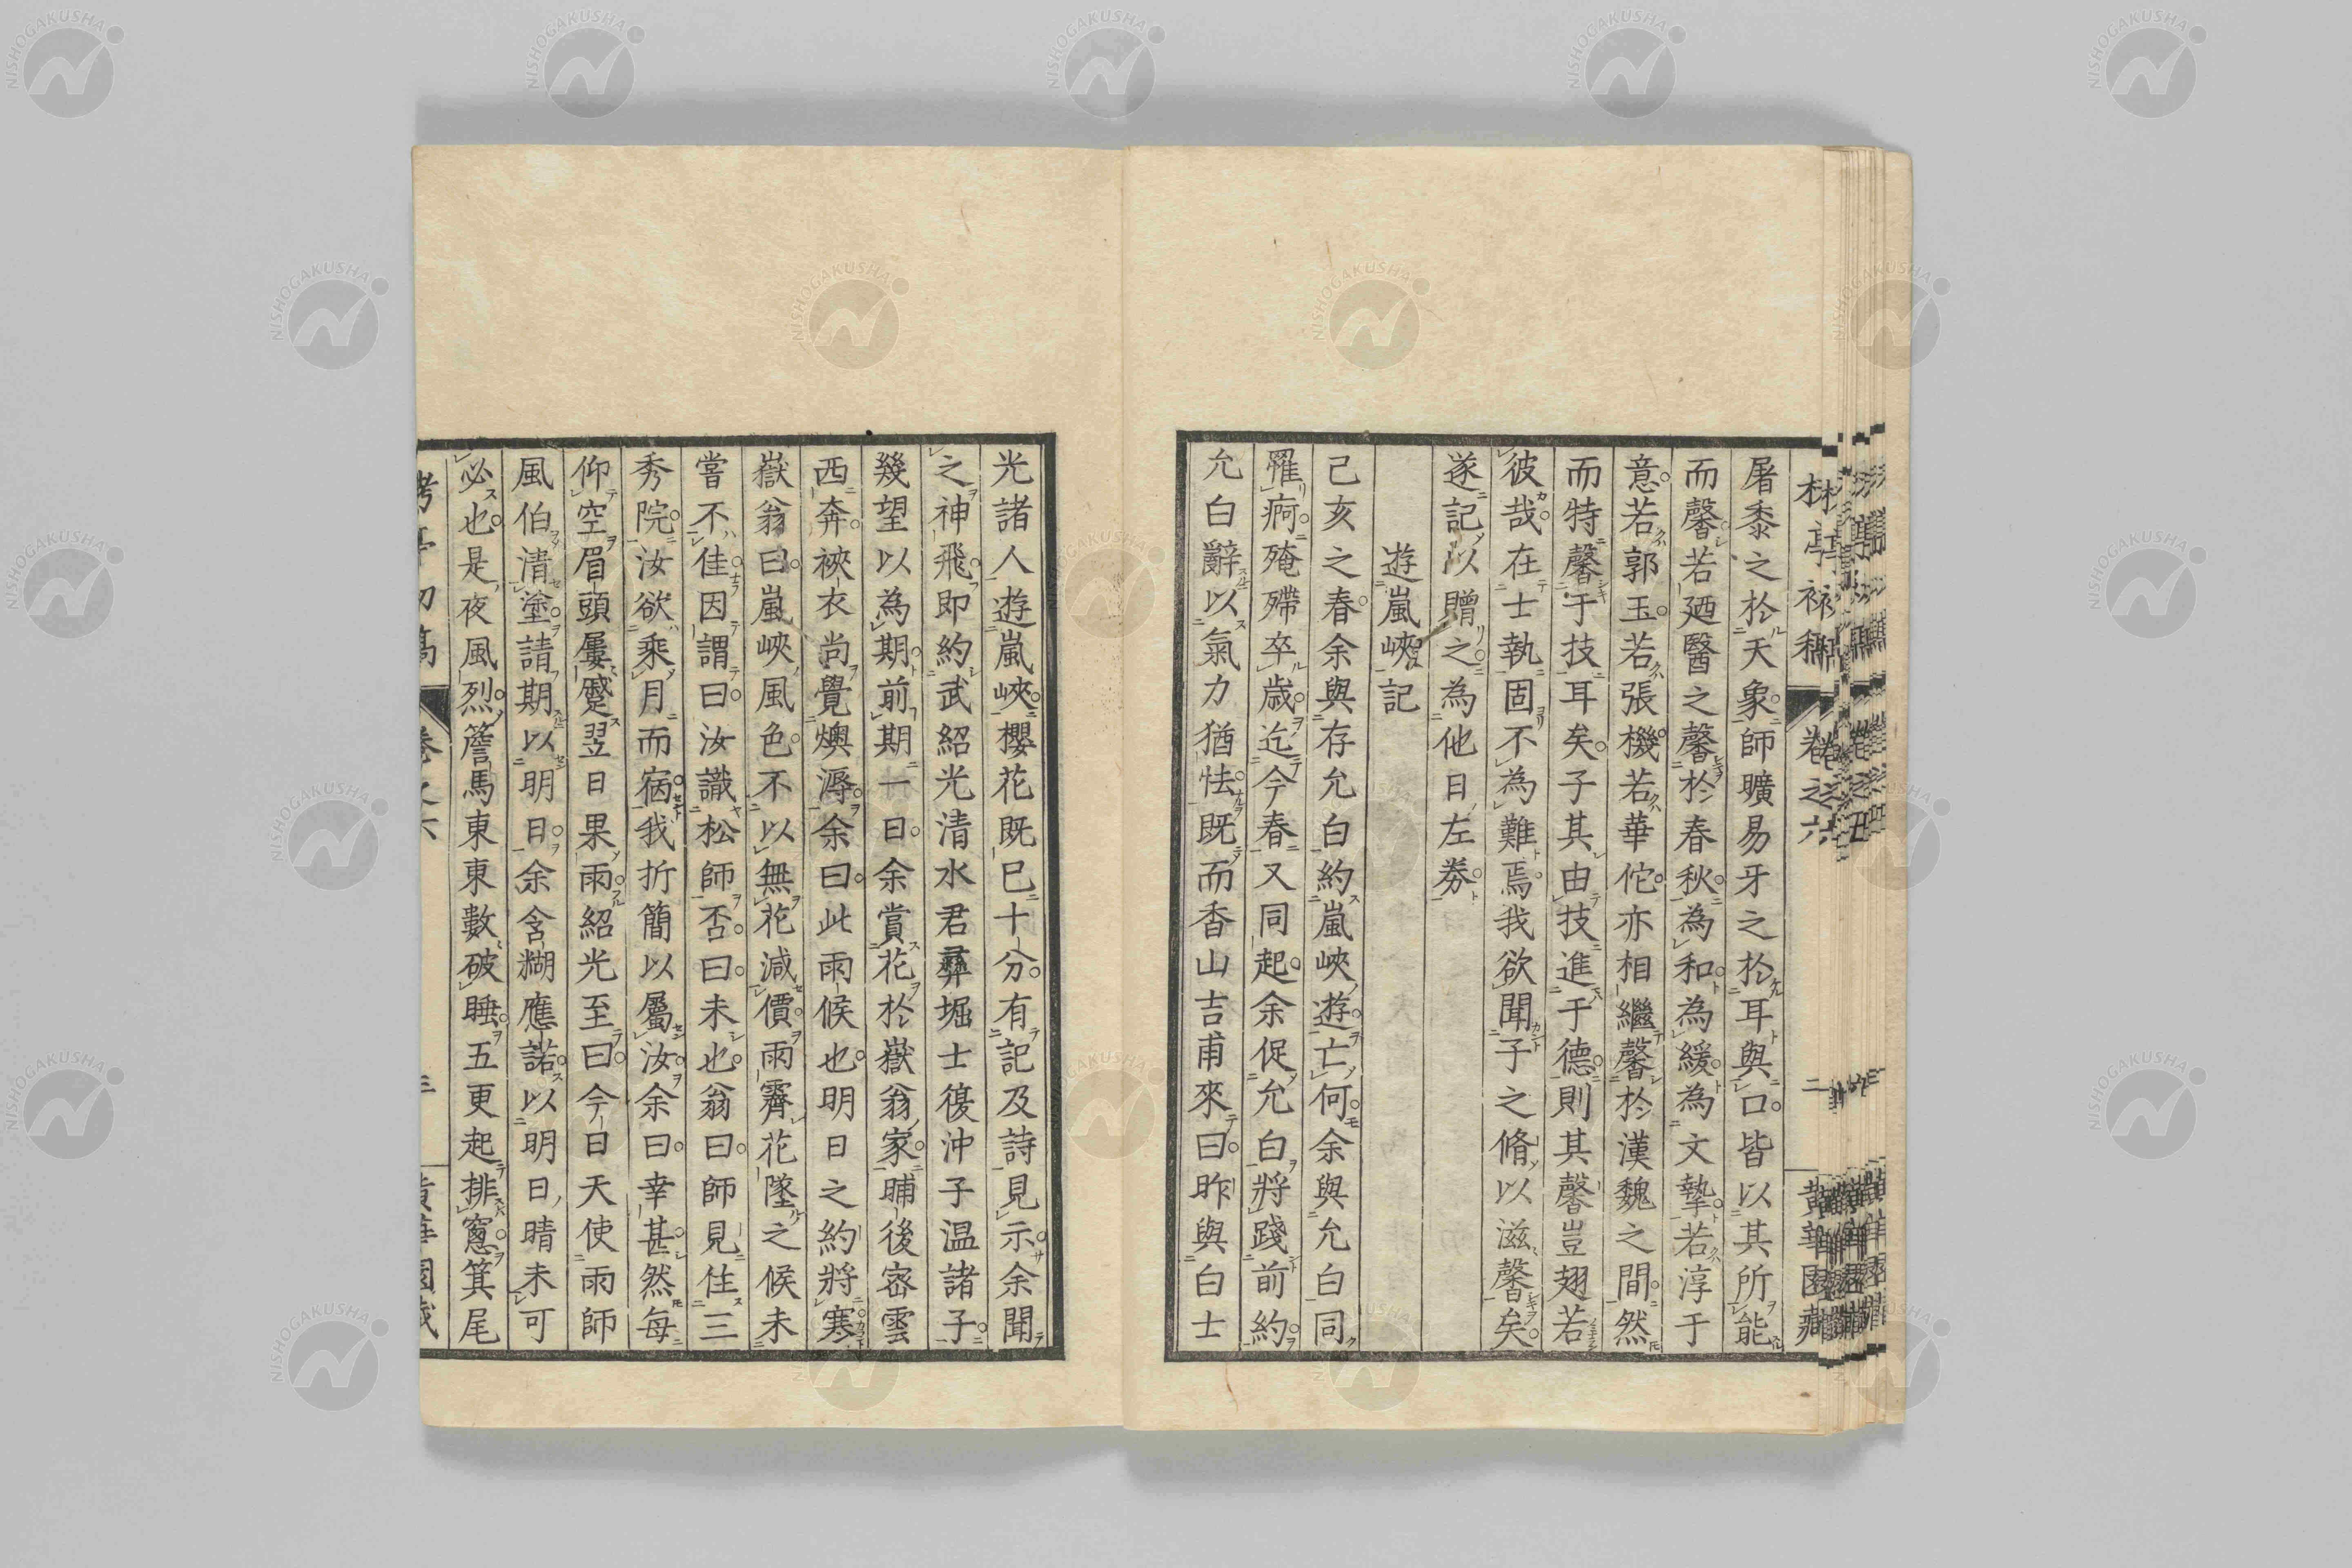 屠黍之於天象師曠易牙之於耳與口皆以其所能
而馨若廼醫之馨於春秋為和為緩為文摯若淳于
意若郭玉若張機若華佗亦相繼馨於漢魏之間然
而特馨于技耳矣子其由技進于德則其馨豈翅若
彼哉在士執固不為難焉我欲聞子之脩以滋馨矣
遂記以贈之為他日左券
遊嵐峽記
己亥之春余與存允白約嵐峽遊亡何余與允白同
罹痾殗殢卒歳迄今春又同起余促允白將踐前約
允白辭以氣力猶怯既而香山吉甫來曰昨與白士
光諸人遊嵐峽櫻花既已十分有記及詩見示余聞
之神飛即約武紹光清水君彛堀士復沖子温諸子
幾望以為期前期一日余賞花於嶽翁家晡後密雲
西奔裌衣尚覺燠溽余曰此雨候也明日之約將寒
嶽翁曰嵐峽風色不以無花減價雨霽花墜之候未
嘗不佳因謂曰汝識松師否曰未也翁曰師見住三
秀院汝欲乘月而宿我折簡以屬汝余曰幸甚然每
仰空眉頭屢蹙翌日果雨紹光至曰今日天使雨師
風伯清塗請期以明日余含糊應諾以明日晴未可
必也是夜風烈簷馬東東數破睡五更起排窻箕尾
卷之六
二
黄華園藏
NISHOGAKUSHA